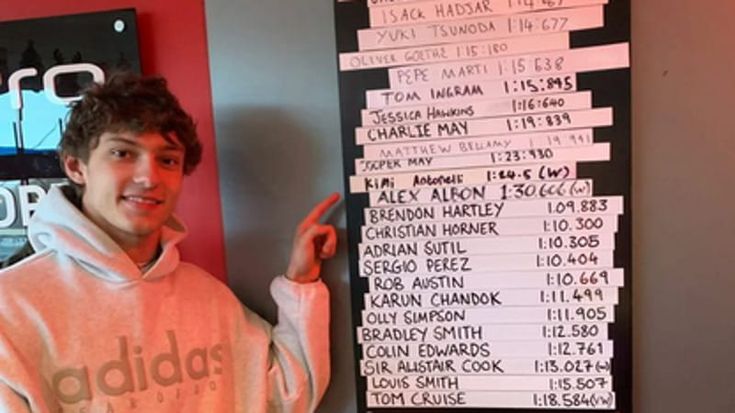 ro
OR
adidas
ISACK HADJAR
YUKI TSUNODA 1:14:677
OLIVER GOETHE 1:15:180
PEPE MARTI 1:15:638
TOM INGRAM 1:15:845
JESSICA HAWKINS 1:16:640
CHARLIE MAY 1:19:839
MATTHEW BELLAMY 1:19:941
COOPER MAY 1:23:930
KIMI Antonelli 1:24.5 (W)
ALEX ALBON 1:30.606 (W)
BRENDON HARTLEY 1.09.883
CHRISTIAN HORNER 1:10.300
ADRIAN SUTIL 1:10.305
SERGIO PEREZ 1:10.404
ROB AUSTIN 1:10.669
KARUN CHANDOK 1:11.499
OLLY SIMPSON 1:11.905
BRADLEY SMITH 1:12.580
COLIN EDWARDS 1:12.761
SIR ALISTAIR COOK 1:13.027 (W)
LOUIS SMITH 1:15.507
TOM CRUISE 1:18.584 (W)